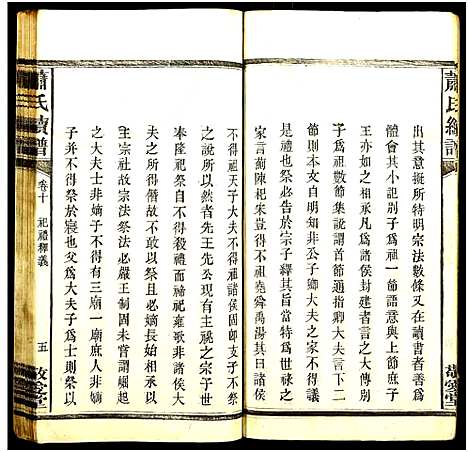 蕭氏續譜
出其意挺所特明宗法數條又在讀書者善爲
體會其小記別子爲祖一節語意與上節庶子
王亦如之相承凡爲諸侯封建者言之大傳別
子爲祖數節集說謂首節通指卿大夫言下二
節則該本文自明知非公子卿大夫之家不得議
是禮也於此益當告於宗子釋其旨當特爲世祿之
家言薊陳杞朱豈得不祖堯舜禹湯其曰諸侯
敬愛堂
不得祖天子大夫不得祖諸侯固卽支子不祭
之說所以然者有先王先公大宗之宗子守世
奉隆祀祭自不得殺禮而禘祀雍歌非諸侯大
夫之所得行所以祭之以爲祭者必嫡子也祭旣
主宗社故宗法祭法必嚴王制固未嘗謂崛起
之大夫士非嫡子不得有三廟一廟庶人非嫡
子并不得祭於寢也父爲大夫子爲士則祭以
蕭氏續譜
卷十
祀禮釋義
五
敬愛堂